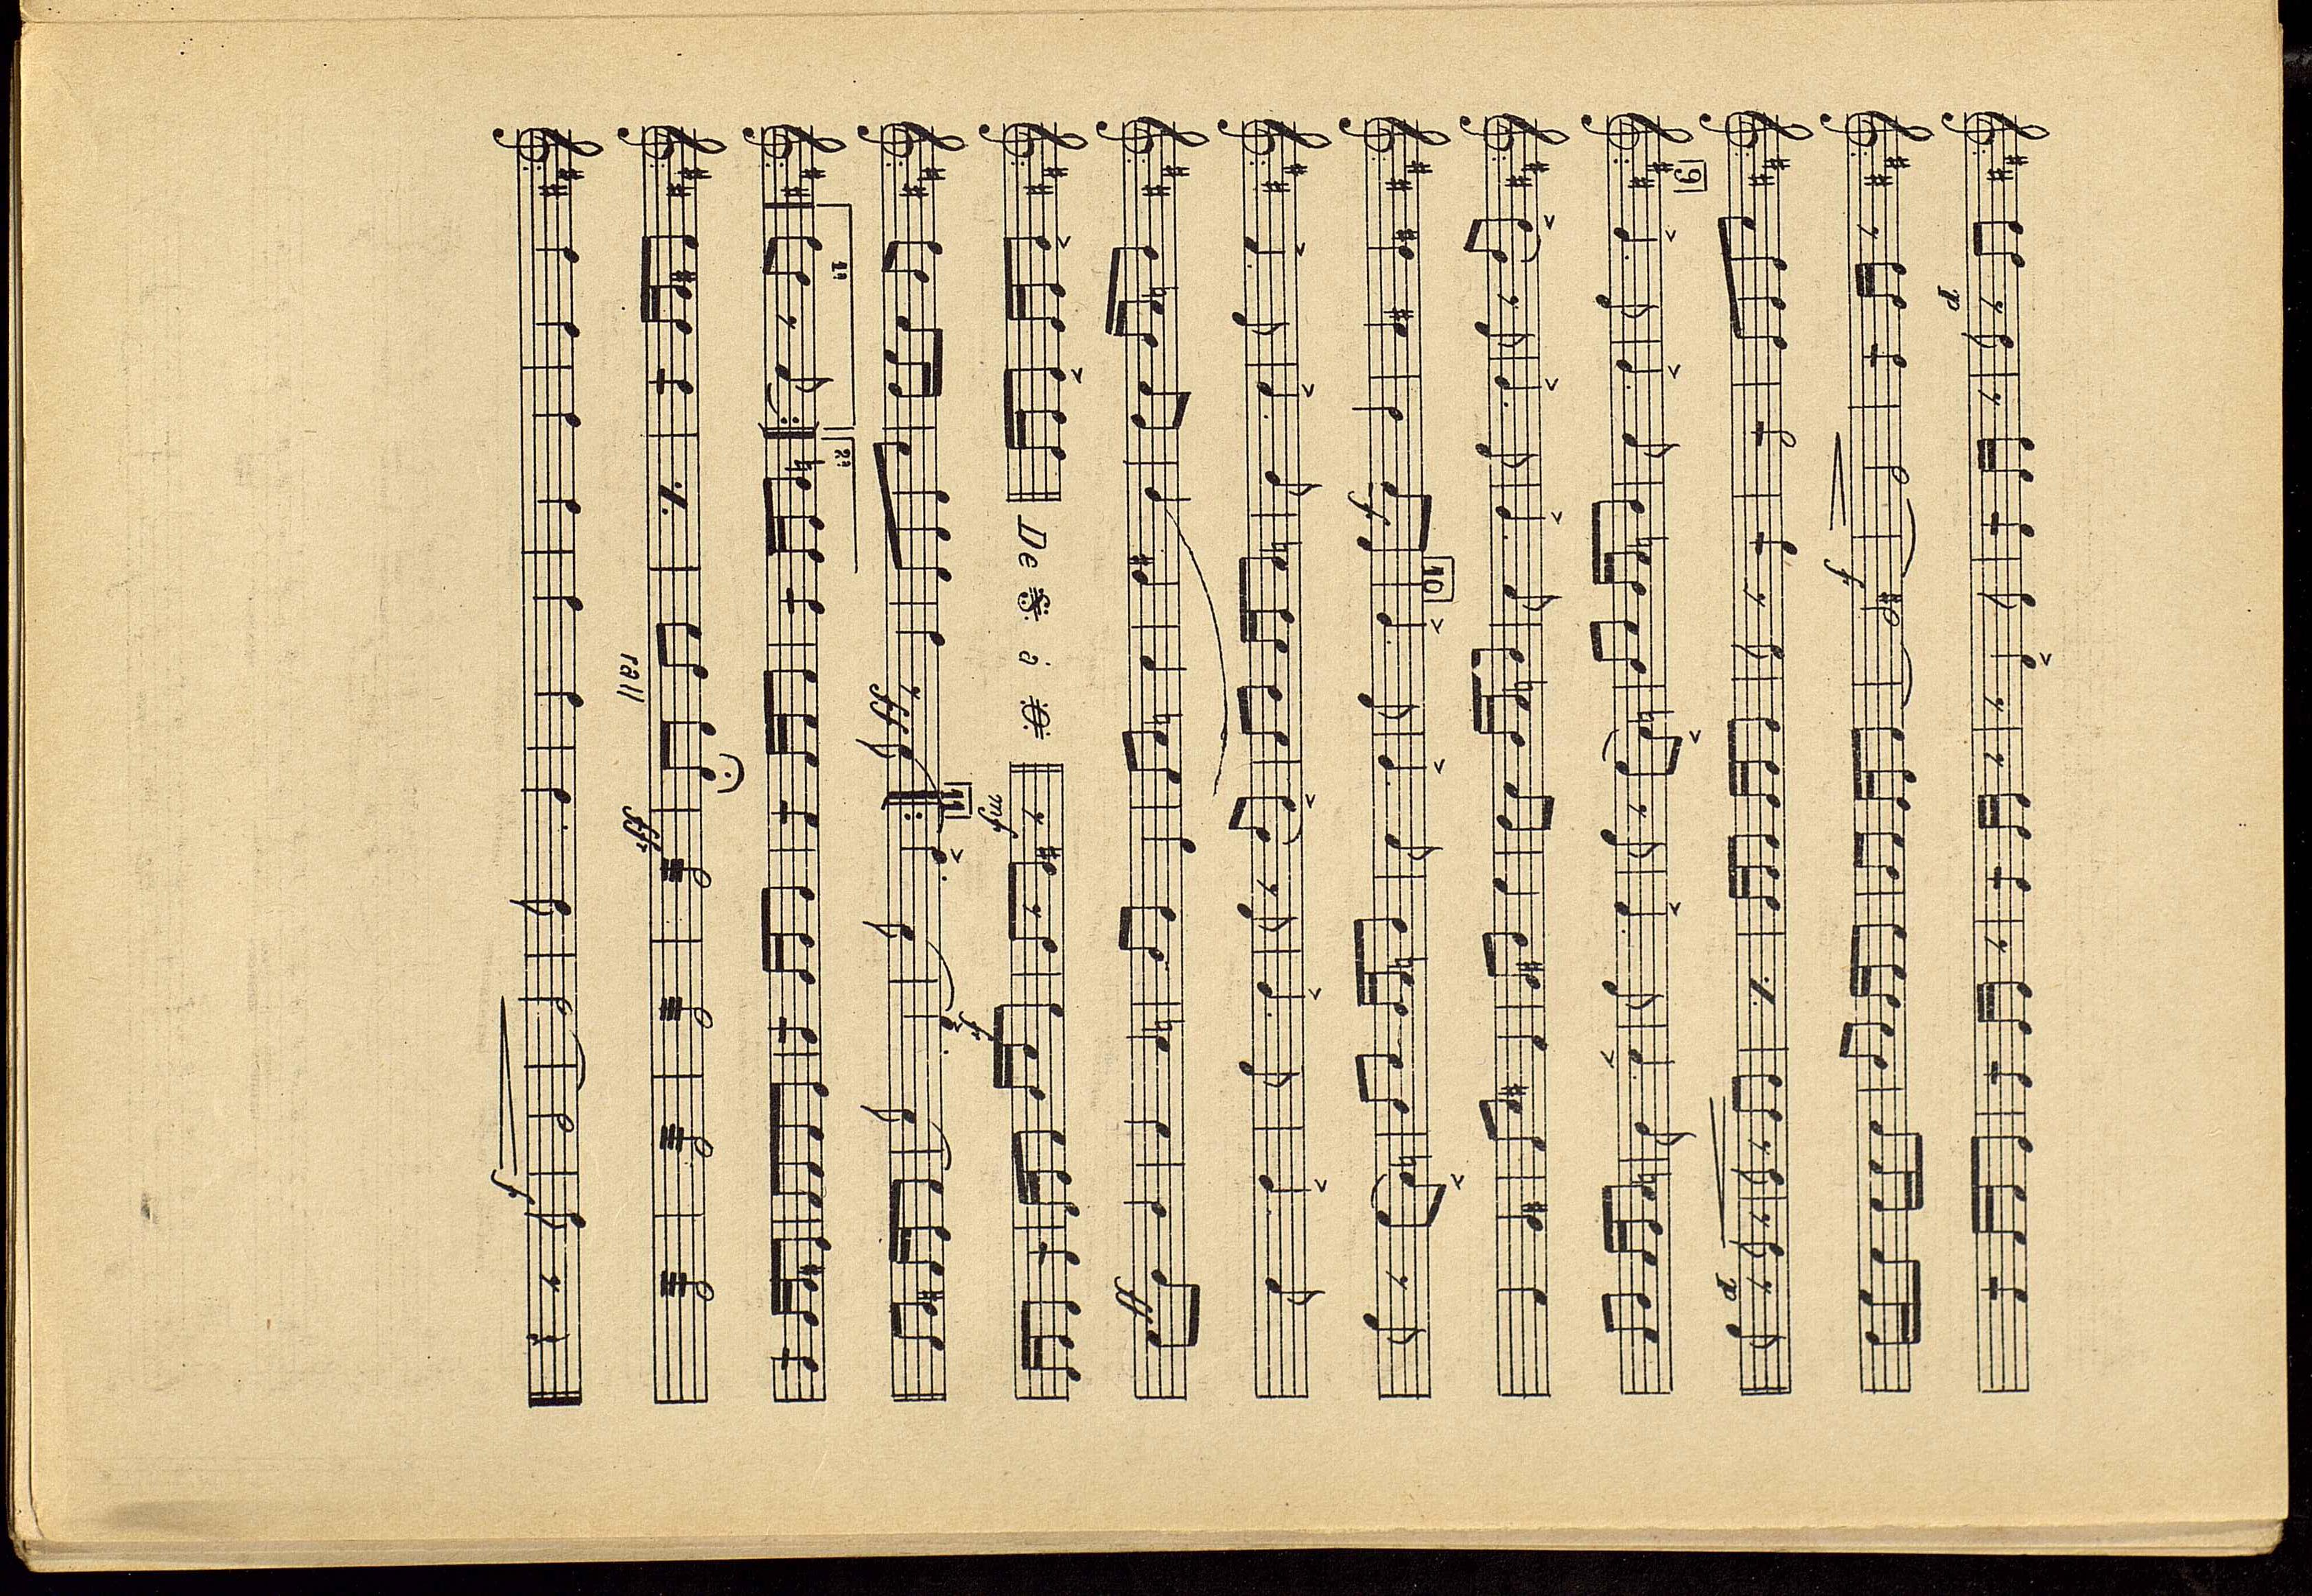 p
f
p
9
f 10
ff
De 𝄋 à 𝄌 mf f
ff 11
1ª 2ª
rall ff
f